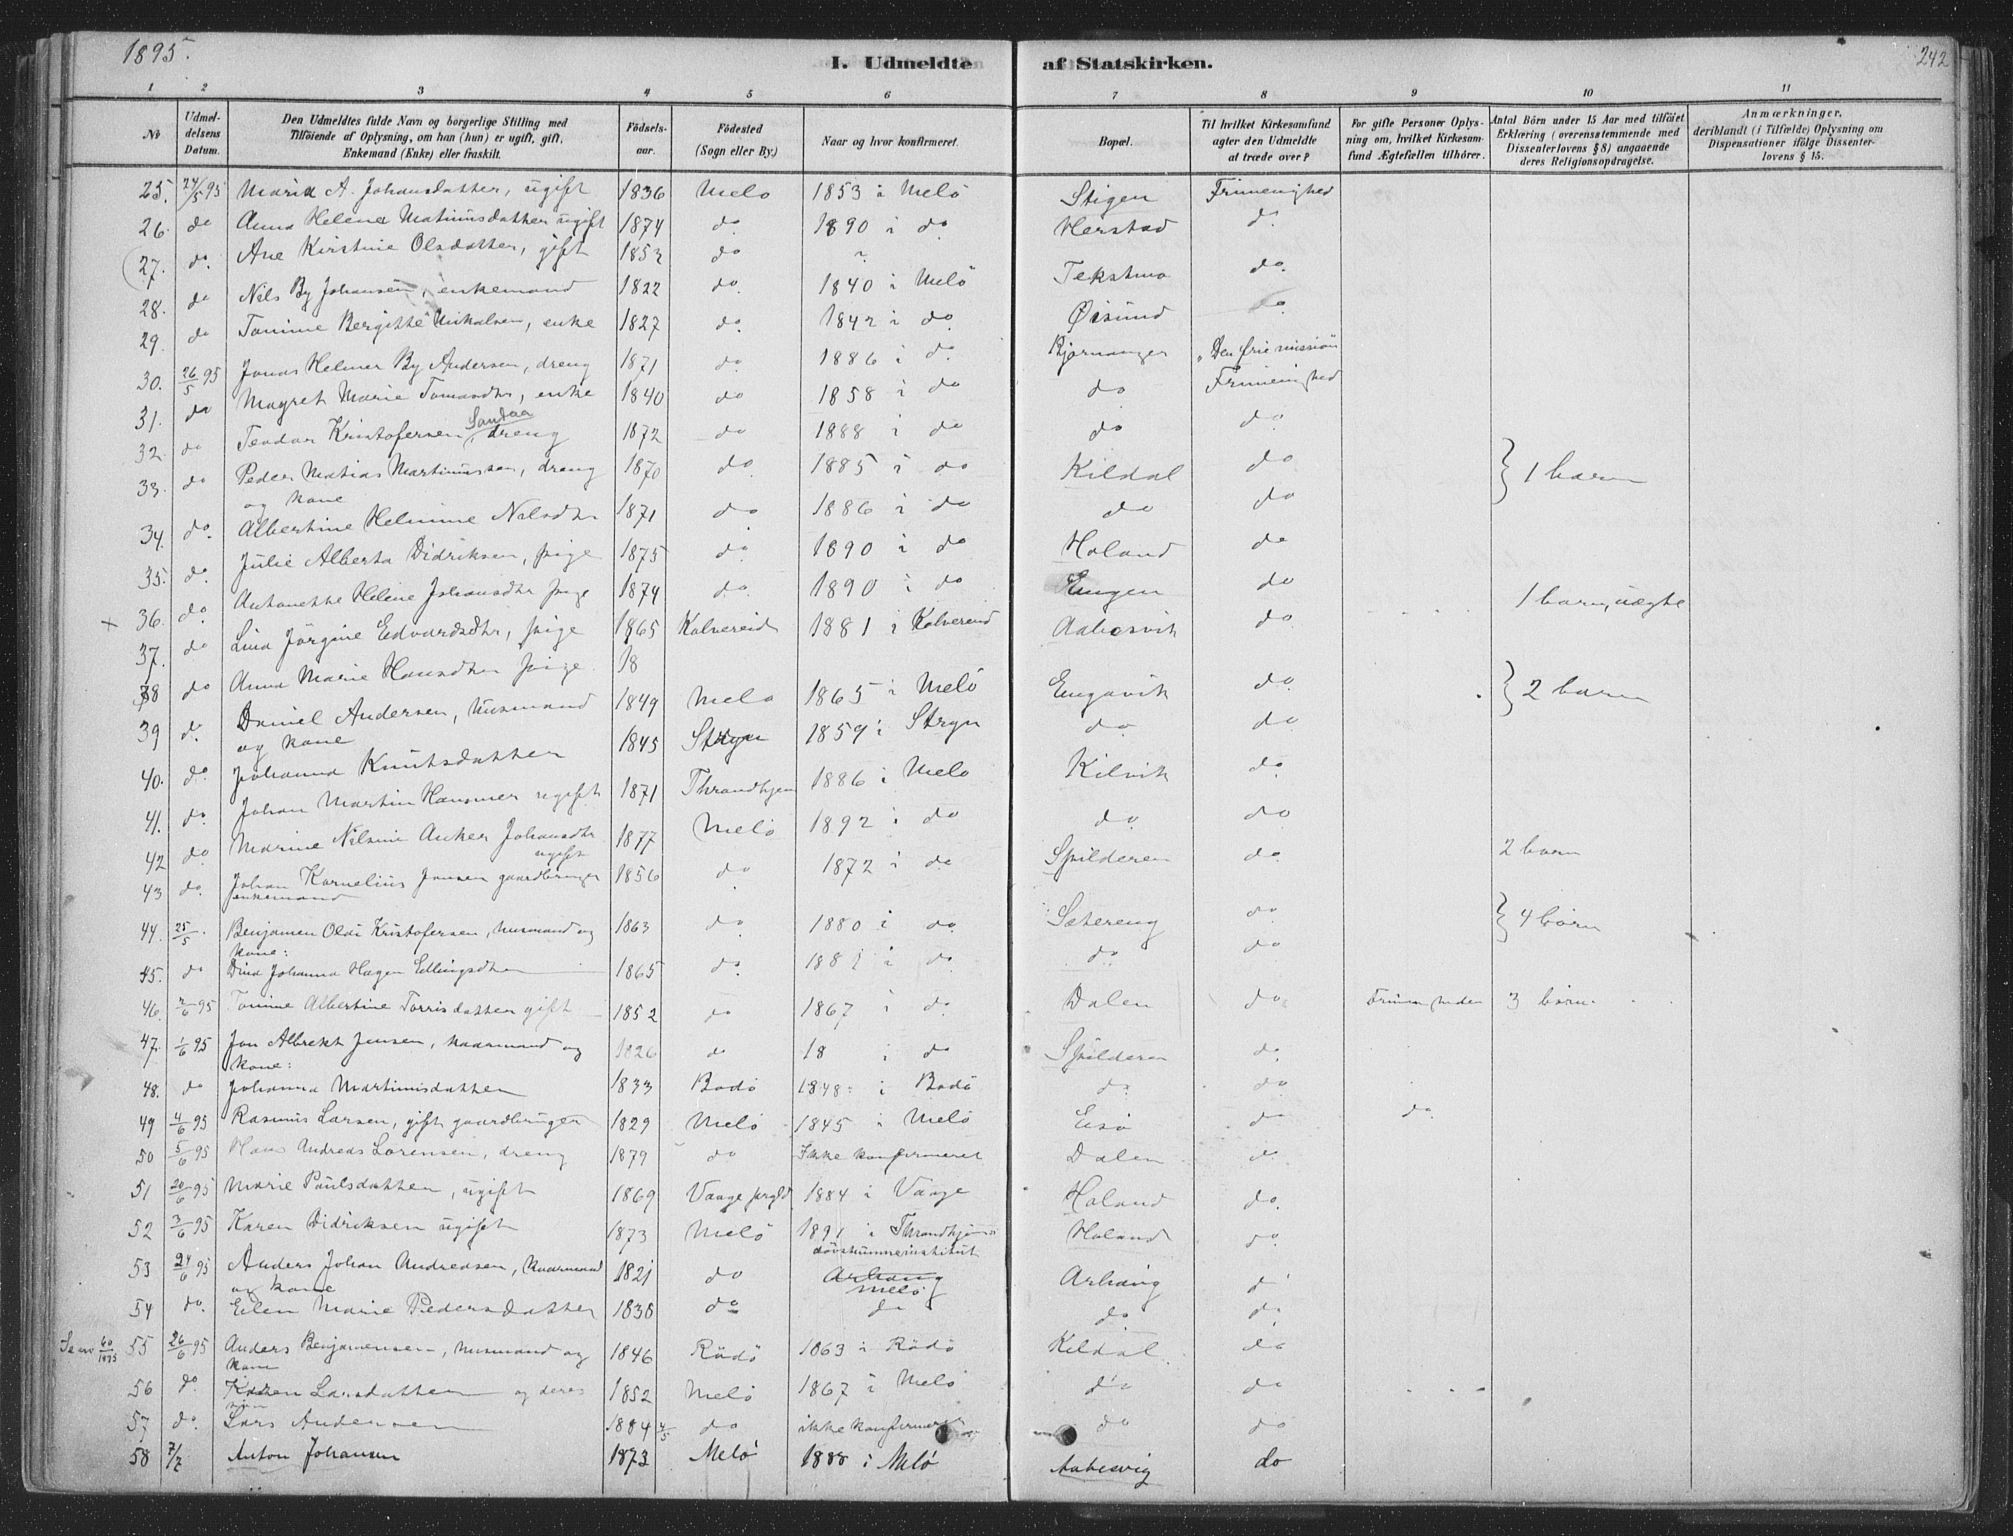 1895.
I. Udmeldte af Statskirken.
242
1 2 3 4 5 6 7 8 9 10 11
No
Udmeldelsens Datum.
Den Udmeldtes fulde Navn og borgerlige Stilling med Tilföiende af Oplysning, om han (hun) er ugift, gift, Enkemand (Enke) eller fraskilt.
Födselsaar.
Födested (Sogn eller By.)
Naar og hvor konfirmeret.
Bopæl.
Til hvilket Kirkesamfund agter den Udmeldte at træde over?
For gifte Personer Oplysning om, hvilket Kirkesamfund Ægtefællen tilhörer.
Antal Börn under 15 Aar med tilföiet Erklæring (overensstemmende med Dissenterlovens § 8) angaaende deres Religionsopdragelse.
Anmærkninger, deriblandt (i Tilfælde) Oplysning om Dispensationer ifölge Dissenterlovens § 15.
25. 24/5 95 Maria A. Johansdatter, ugift 1836 Melö 1853 i Melö Stigen Frimenighed
26. do Anna Helena Matiusdatter ugift 1874 do. 1890 i do Herstad do
27. do. Ane Kirstine Olsdatter, gift 1853 do Tekstmo do.
28. do Nils By Johansen, enkemand 1822 do. 1840 i Melö Öisund do
29. do Tomine Bergitte Mikalsen, enke 1827 do. 1842 i do Bjærnanger "Den frie mission
30. 26/5 95 Jonas Helmer By Andersen, dreng 1871 do. 1886 i do. do Frimenighed
31. do Magret Marie Tomasdtr, enke 1840 do 1858 i do do do
32. do Teodor Kristofersen Sandaa dreng 1872 do 1888 i do
33. do Peder Matias Martinussen, dreng 1870 do. 1885 i do Kildal do } 1 barn
og kone
34. do. Albertine Helmine Nilsdtr 1871 do 1886 i do do do
35. do. Julie Alberta Didriksen, pige 1875 do. 1890 i do Holand do
+ 36. do. Antonette Helene Johansdtr pige 1874 do. 1890 i do Engen do 1 barn, uægte
37. do Lina Jörgine Edvardsdtr, pige 1865 Kolvereid 1881 i Kolvereid Aabosvik do
38 do Anna Marie Hansdtr pige. 18
39 do. Daniel Andersen, husmand 1849 Melö 1865 i Melö Engavik do } 2 barn
og kone
40. do. Johanna Knutsdatter 1845 Stryn 1859 i Stryn do. do
41. do. Johan Martin Hammer ugift 1871 Throndhjem 1886 i Melö Kilvik do
42 do Marine Nilsine Anker Johansdtr ugift 1877 Melö 1892 i do do do
43 do. Johan Kornelius Jensen gaardbruger enkemand 1856 do 1872 i do Spilderen do. 2 barn
44. 25/5 Benjamen Olai Kristofersen, husmand og 1863 do 1880 i do Sætereng do } 4 börn
kone:
45. do Dina Johanna Hagen Ellingsdtr 1865 do. 1881 i do do do
46. 2/6 95 Tomine Albertine Torrisdatter gift 1852 do 1867 i do. Dalen do 3 börn.
47. 1/6 95 Jon Albrekt Jensen, kaarmand og 1826 do 18 i do Spilderen do.
kone:
48. do Johanna Martinusdatter 1833 Bodö 1848 i Bodö do. do
49 4/6 95 Rasmus Larsen, gift gaardbruger 1829 Melö 1845 i Melö Eisö do do.
50 5/6 95 Hans Andreas Lorensen, dreng 1879 do Ikke konfirmeret Dalen do
51 20/6 95 Marie Paulsdatter, ugift 1869 Vaage prgld 1884 i Vaage Holand do.
52 3/6 95 Karen Didriksen ugift 1873 Melö 1891 i Throndhjems dövstummeinstitut Holand do.
53 24/6 95 Anders Johan Andreasen, kaarmand 1821 do Arhaug Melö Arhaug do
og kone
54 do. Ellen Marie Pedersdatter 1838 do do do. do.
55 26/6 95 Anders Benjamensen, husmand og 1846 Rödö 1863 i Rödö Kildal do
kone
56 do. Karen Larsdatter og deres 1852 Melö 1867 i Melö do do
57 do. Lars Andersen 1884 4/5 do ikke konfirmeret do do
58 7/7 Anton Johansen 1873 Melö 1888 i Melö Aabesvig do